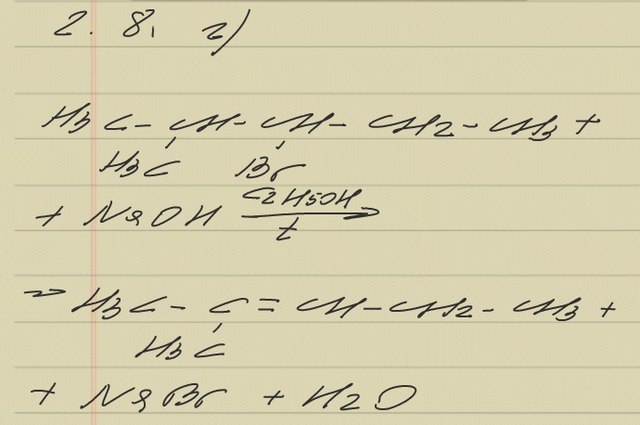 2. 8, г)
H3C - CH - CH - CH2 - CH3 +
H3C Br
+ NaOH C2H5OH
t
→ H3C - C = CH - CH2 - CH3 +
H3C
+ NaBr + H2O